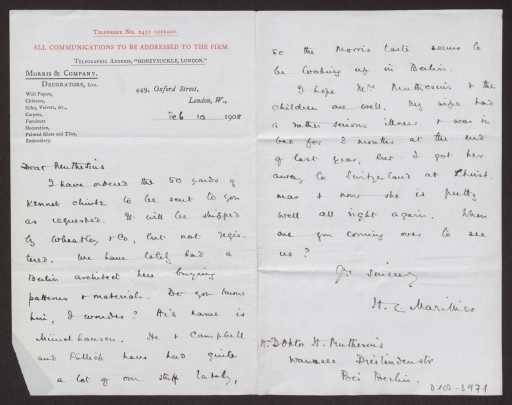 TELEPHONE No. 2451 GERRARD.
ALL COMMUNICATIONS TO BE ADDRESSED TO THE FIRM.
TELEGRAPHIC ADDRESS, "HONEYSUCKLE, LONDON."
MORRIS & COMPANY,
DECORATORS, LTD.
Wall Papers,
Chintzes,
Silks, Velvets, &c.,
Carpets,
Furniture
Decoration,
Painted Glass and Tiles,
Embroidery.
449, Oxford Street,
London, W.,
Feb 10 1908
Dear Muthesius
I have ordered the 50 yards of
Kennet chintz to be sent to you
as requested. It will be shipped
by Wheatley & Co, but not regis-
tered. We have lately had a
Berlin architect here buying
patterns & materials. Do you know
him, I wonder? His name is
Münchhausen. He & Campbell
and Pullich have had quite
a lot of our stuff lately,
so the Morris taste seems to
be looking up in Berlin.
I hope Mrs Muthesius & the
children are well. My wife had
a rather serious illness & was in
bed for 2 months at the end
of last year, but I got her
away to Switzerland at Christ
mas & now she is pretty
well all right again. When
are you coming over to see
us?
Yrs sincerely
H. C. Marillier
H. Doktor H. Muthesius
Wannsee
Bei Berlin.
D 102-3971